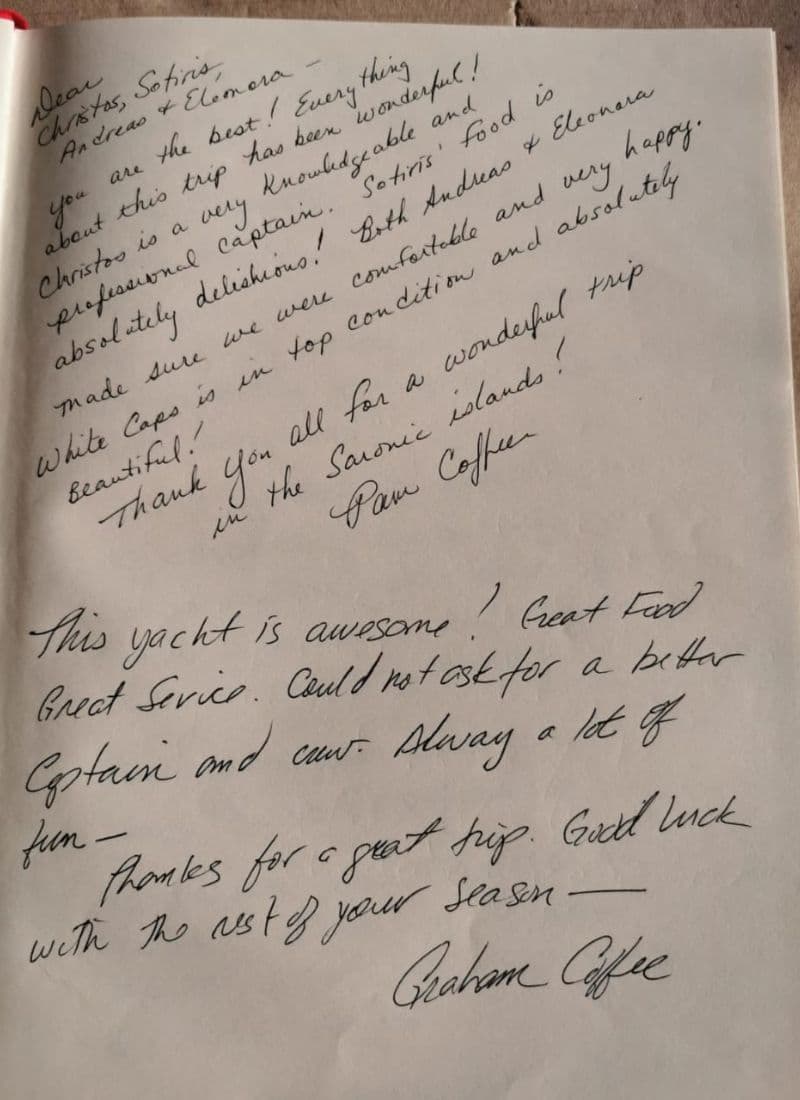 Dear
Christos, Sotiris,
Andreas & Eleonora -
You are the best! Everything
about this trip has been wonderful!
Christos is a very knowledgeable and
professional captain. Sotiris' food is
absolutely delishious! Both Andreas & Eleonara
made sure we were comfortable and very happy.
White Caps is in top condition and absolutely
Beautiful!
Thank you all for a wonderful trip
in the Saronic islands!
Pam Coffee
This yacht is awesome! Great Food
Great Service. Could not ask for a better
Captain and crew. Alway a lot of
fun -
Thanks for a great trip. Good luck
with the rest of your season —
Graham Coffee